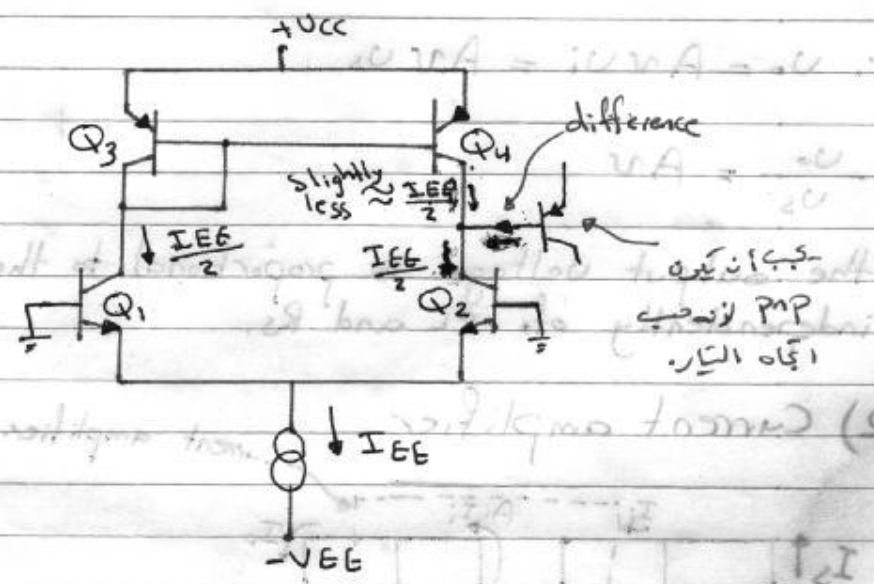 +VCC
difference
Q3
Q4
slightly
less ≈ IEE/2
IEE/2
IEE/2
يجب أن يكون
pnp لأنه حسب
اتجاه التيار.
Q1
Q2
IEE
-VEE